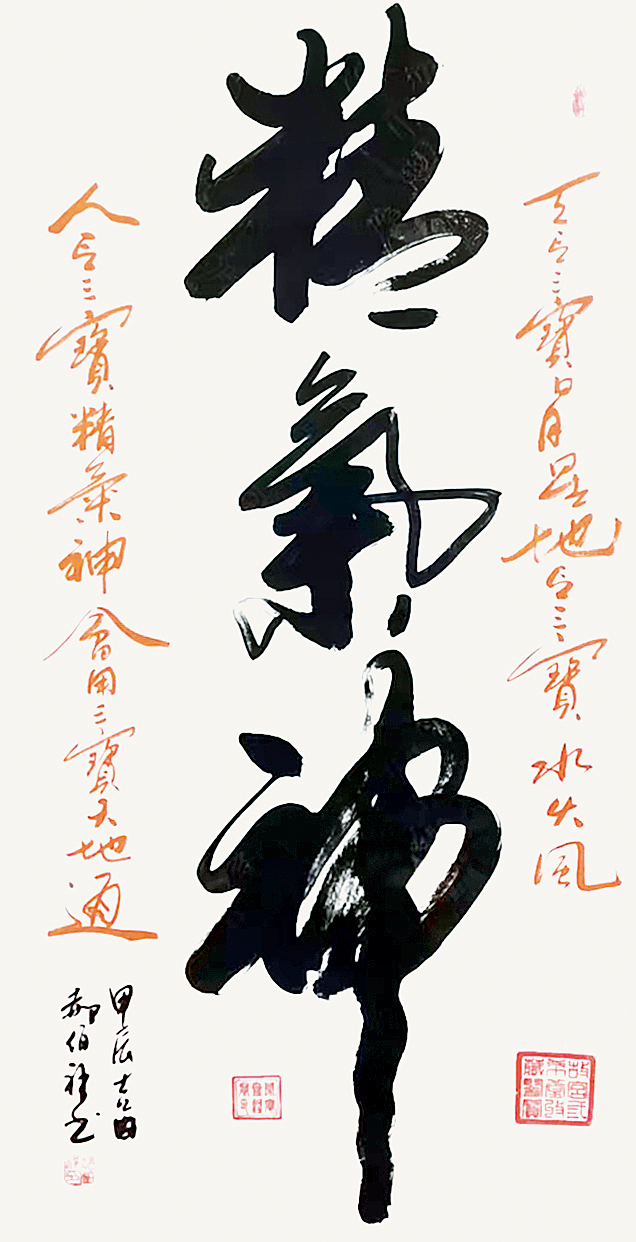 天有三寶日月星地有三寶水火風
精氣神
人有三寶精氣神會用三寶天地通
甲辰
郝伯书